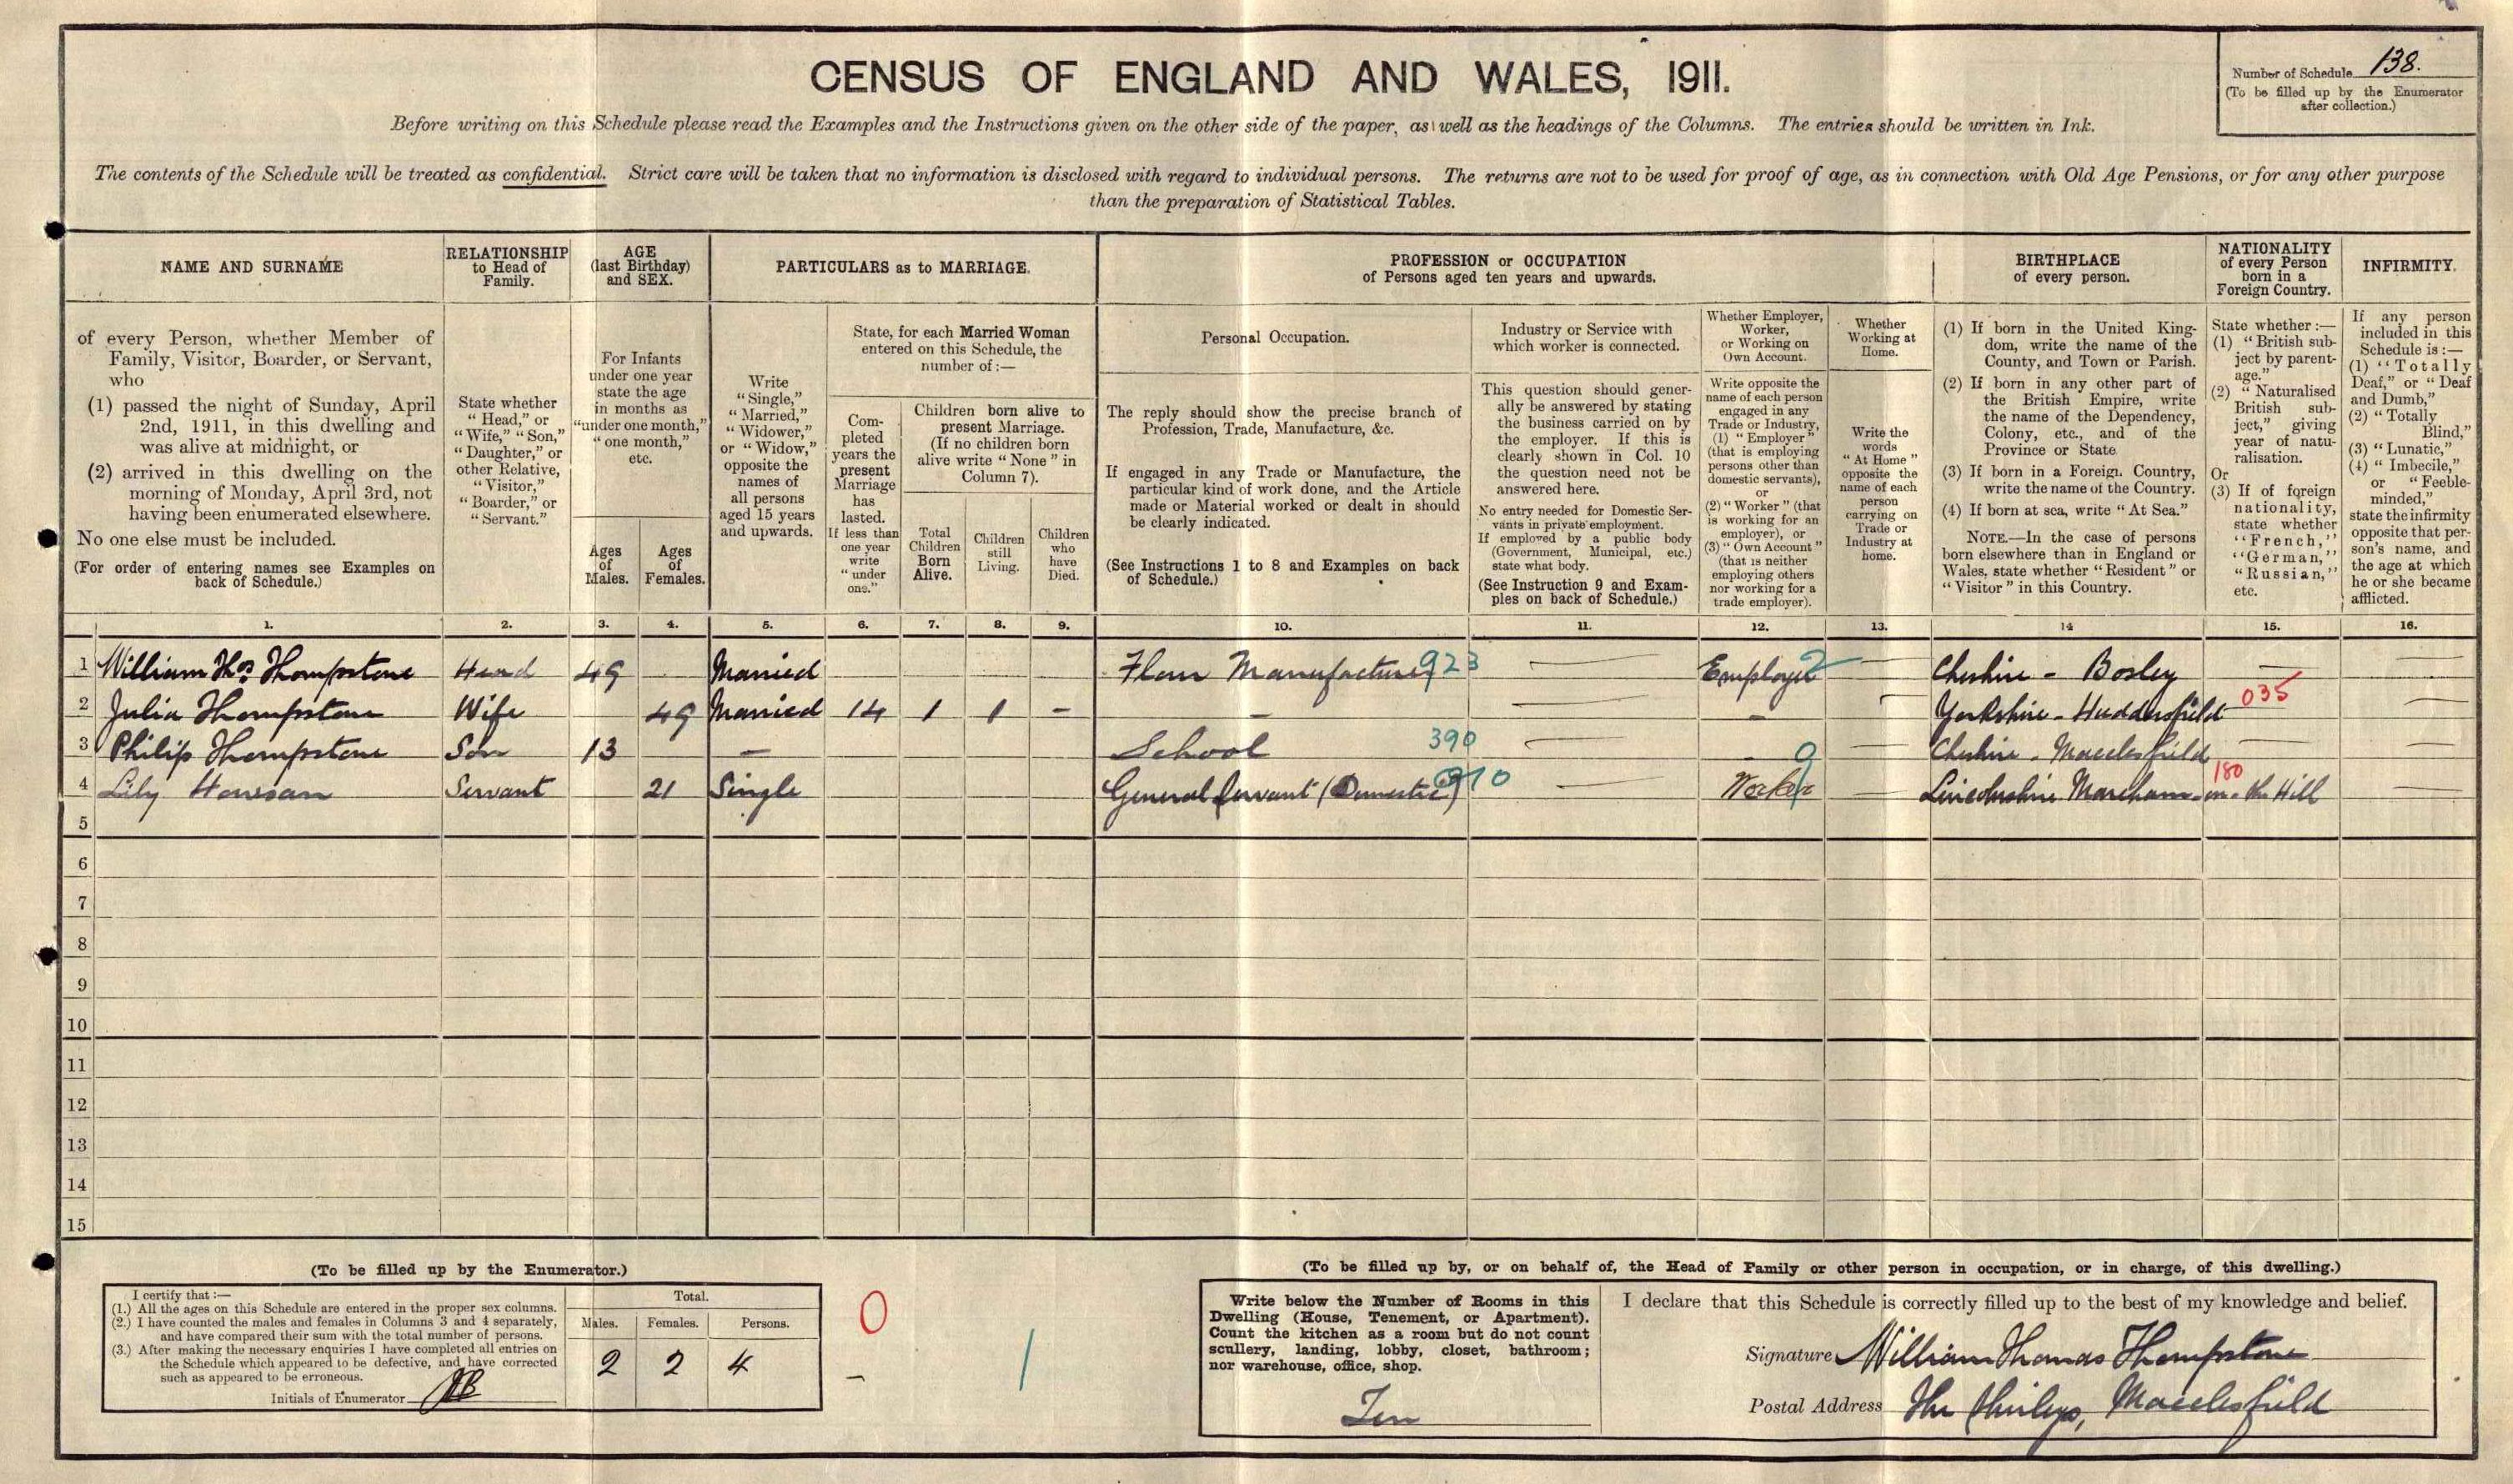 CENSUS OF ENGLAND AND WALES, 1911.
Number of Schedule 138.
(To be filled up by the Enumerator
after collection.)
Before writing on this Schedule please read the Examples and the Instructions given on the other side of the paper, as well as the headings of the Columns. The entries should be written in Ink.
The contents of the Schedule will be treated as confidential. Strict care will be taken that no information is disclosed with regard to individual persons. The returns are not to be used for proof of age, as in connection with Old Age Pensions, or for any other purpose
than the preparation of Statistical Tables.
NAME AND SURNAME
of every Person, whether Member of
Family, Visitor, Boarder, or Servant,
who
(1) passed the night of Sunday, April
2nd, 1911, in this dwelling and
was alive at midnight, or
(2) arrived in this dwelling on the
morning of Monday, April 3rd, not
having been enumerated elsewhere.
No one else must be included.
(For order of entering names see Examples on
back of Schedule.)
RELATIONSHIP
to Head of
Family.
State whether
"Head," or
"Wife," "Son,"
"Daughter," or
other Relative,
"Visitor,"
"Boarder," or
"Servant."
AGE
(last Birthday)
and SEX.
For Infants
under one year
state the age
in months as
"under one month,"
"one month,"
etc.
Ages
of
Males.
Ages
of
Females.
PARTICULARS as to MARRIAGE.
Write
"Single,"
"Married,"
"Widower,"
or "Widow,"
opposite the
names of
all persons
aged 15 years
and upwards.
State, for each Married Woman
entered on this Schedule, the
number of :—
Com-
pleted
years the
present
Marriage
has
lasted.
If less than
one year
write
"under
one."
Children born alive to
present Marriage.
(If no children born
alive write "None" in
Column 7).
Total
Children
Born
Alive.
Children
still
Living.
Children
who
have
Died.
PROFESSION or OCCUPATION
of Persons aged ten years and upwards.
Personal Occupation.
The reply should show the precise branch of
Profession, Trade, Manufacture, &c.
If engaged in any Trade or Manufacture, the
particular kind of work done, and the Article
made or Material worked or dealt in should
be clearly indicated.
(See Instructions 1 to 8 and Examples on back
of Schedule.)
Industry or Service with
which worker is connected.
This question should gener-
ally be answered by stating
the business carried on by
the employer. If this is
clearly shown in Col. 10
the question need not be
answered here.
No entry needed for Domestic Ser-
vants in private employment.
If employed by a public body
(Government, Municipal, etc.)
state what body.
(See Instruction 9 and Exam-
ples on back of Schedule.)
Whether Employer,
Worker,
or Working on
Own Account.
Write opposite the
name of each person
engaged in any
Trade or Industry,
(1) "Employer"
(that is employing
persons other than
domestic servants),
or
(2) "Worker" (that
is working for an
employer), or
(3) "Own Account"
(that is neither
employing others
nor working for a
trade employer).
Whether
Working at
Home.
Write the
words
"At Home"
opposite the
name of each
person
carrying on
Trade or
Industry at
home.
BIRTHPLACE
of every person.
(1) If born in the United King-
dom, write the name of the
County, and Town or Parish.
(2) If born in any other part of
the British Empire, write
the name of the Dependency,
Colony, etc., and of the
Province or State
(3) If born in a Foreign Country,
write the name of the Country.
(4) If born at sea, write "At Sea."
NOTE.—In the case of persons
born elsewhere than in England or
Wales, state whether "Resident" or
"Visitor" in this Country.
NATIONALITY
of every Person
born in a
Foreign Country.
State whether :—
(1) "British sub-
ject by parent-
age."
(2) "Naturalised
British sub-
ject," giving
year of natu-
ralisation.
Or
(3) If of foreign
nationality,
state whether
"French,"
"German,"
"Russian,"
etc.
INFIRMITY.
If any person
included in this
Schedule is :—
(1) "Totally
Deaf," or "Deaf
and Dumb,"
(2) "Totally
Blind,"
(3) "Lunatic,"
(4) "Imbecile,"
or "Feeble-
minded,"
state the infirmity
opposite that per-
son's name, and
the age at which
he or she became
afflicted.
1. 2. 3. 4. 5. 6. 7. 8. 9. 10. 11. 12. 13. 14 15. 16.
1 William Thos Thompstone Head 49 Married Flour Manufacturer 923 — Employer 2 — Cheshire - Bosley — —
2 Julia Thompstone Wife 49 Married 14 1 1 — — — — Yorkshire - Huddersfield 035 —
3 Philip Thompstone Son 13 — School 390 — — 0 — Cheshire - Macclesfield — —
4 Lily Howsan Servant 21 Single General Servant (Domestic) 010 — Worker — Lincolnshire Mareham-on-the Hill 180 —
5
6
7
8
9
10
11
12
13
14
15
(To be filled up by the Enumerator.)
I certify that :—
(1.) All the ages on this Schedule are entered in the proper sex columns.
(2.) I have counted the males and females in Columns 3 and 4 separately,
and have compared their sum with the total number of persons.
(3.) After making the necessary enquiries I have completed all entries on
the Schedule which appeared to be defective, and have corrected
such as appeared to be erroneous.
Initials of Enumerator
Total.
Males. Females. Persons.
2 2 4
0
1
(To be filled up by, or on behalf of, the Head of Family or other person in occupation, or in charge, of this dwelling.)
Write below the Number of Rooms in this
Dwelling (House, Tenement, or Apartment).
Count the kitchen as a room but do not count
scullery, landing, lobby, closet, bathroom;
nor warehouse, office, shop.
Ten
I declare that this Schedule is correctly filled up to the best of my knowledge and belief.
Signature William Thomas Thompstone
Postal Address The Macclesfield